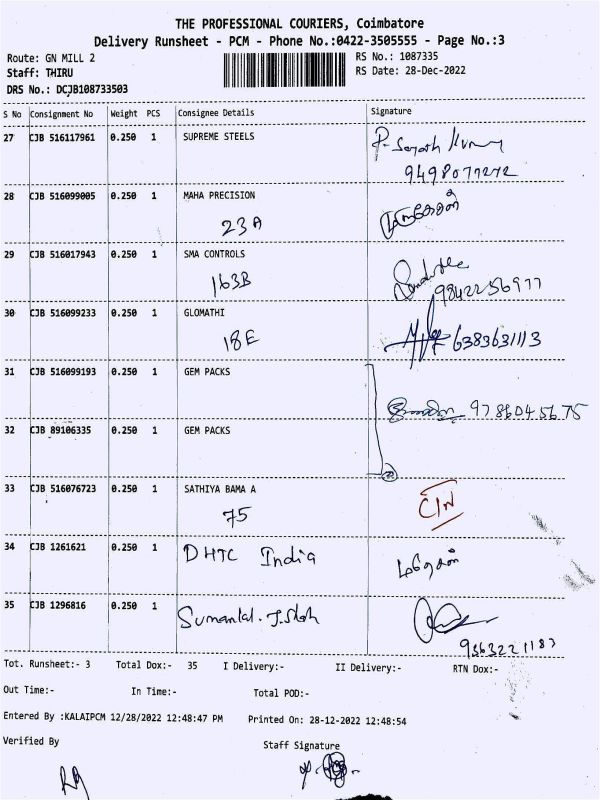 THE PROFESSIONAL COURIERS, Coimbatore
Delivery Runsheet - PCM - Phone No.:0422-3505555 - Page No.:3
Route: GN MILL 2
RS No.: 1087335
Staff: THIRU
RS Date: 28-Dec-2022
DRS No.: DCJB108733503
S No Consignment No Weight PCS Consignee Details Signature
27 CJB 516117961 0.250 1 SUPREME STEELS
9498077272
28 CJB 516099005 0.250 1 MAHA PRECISION
23A
29 CJB 516017943 0.250 1 SMA CONTROLS
163B 9842256977
30 CJB 516099233 0.250 1 GLOMATHI
18E 6383631113
31 CJB 516099193 0.250 1 GEM PACKS
9786045675
32 CJB 89106335 0.250 1 GEM PACKS
33 CJB 516076723 0.250 1 SATHIYA BAMA A
75
34 CJB 1261621 0.250 1 DHTC India
35 CJB 1296816 0.250 1
9363221187
Tot. Runsheet:- 3 Total Dox:- 35 I Delivery:- II Delivery:- RTN Dox:-
Out Time:- In Time:- Total POD:-
Entered By :KALAIPCM 12/28/2022 12:48:47 PM Printed On: 28-12-2022 12:48:54
Verified By Staff Signature